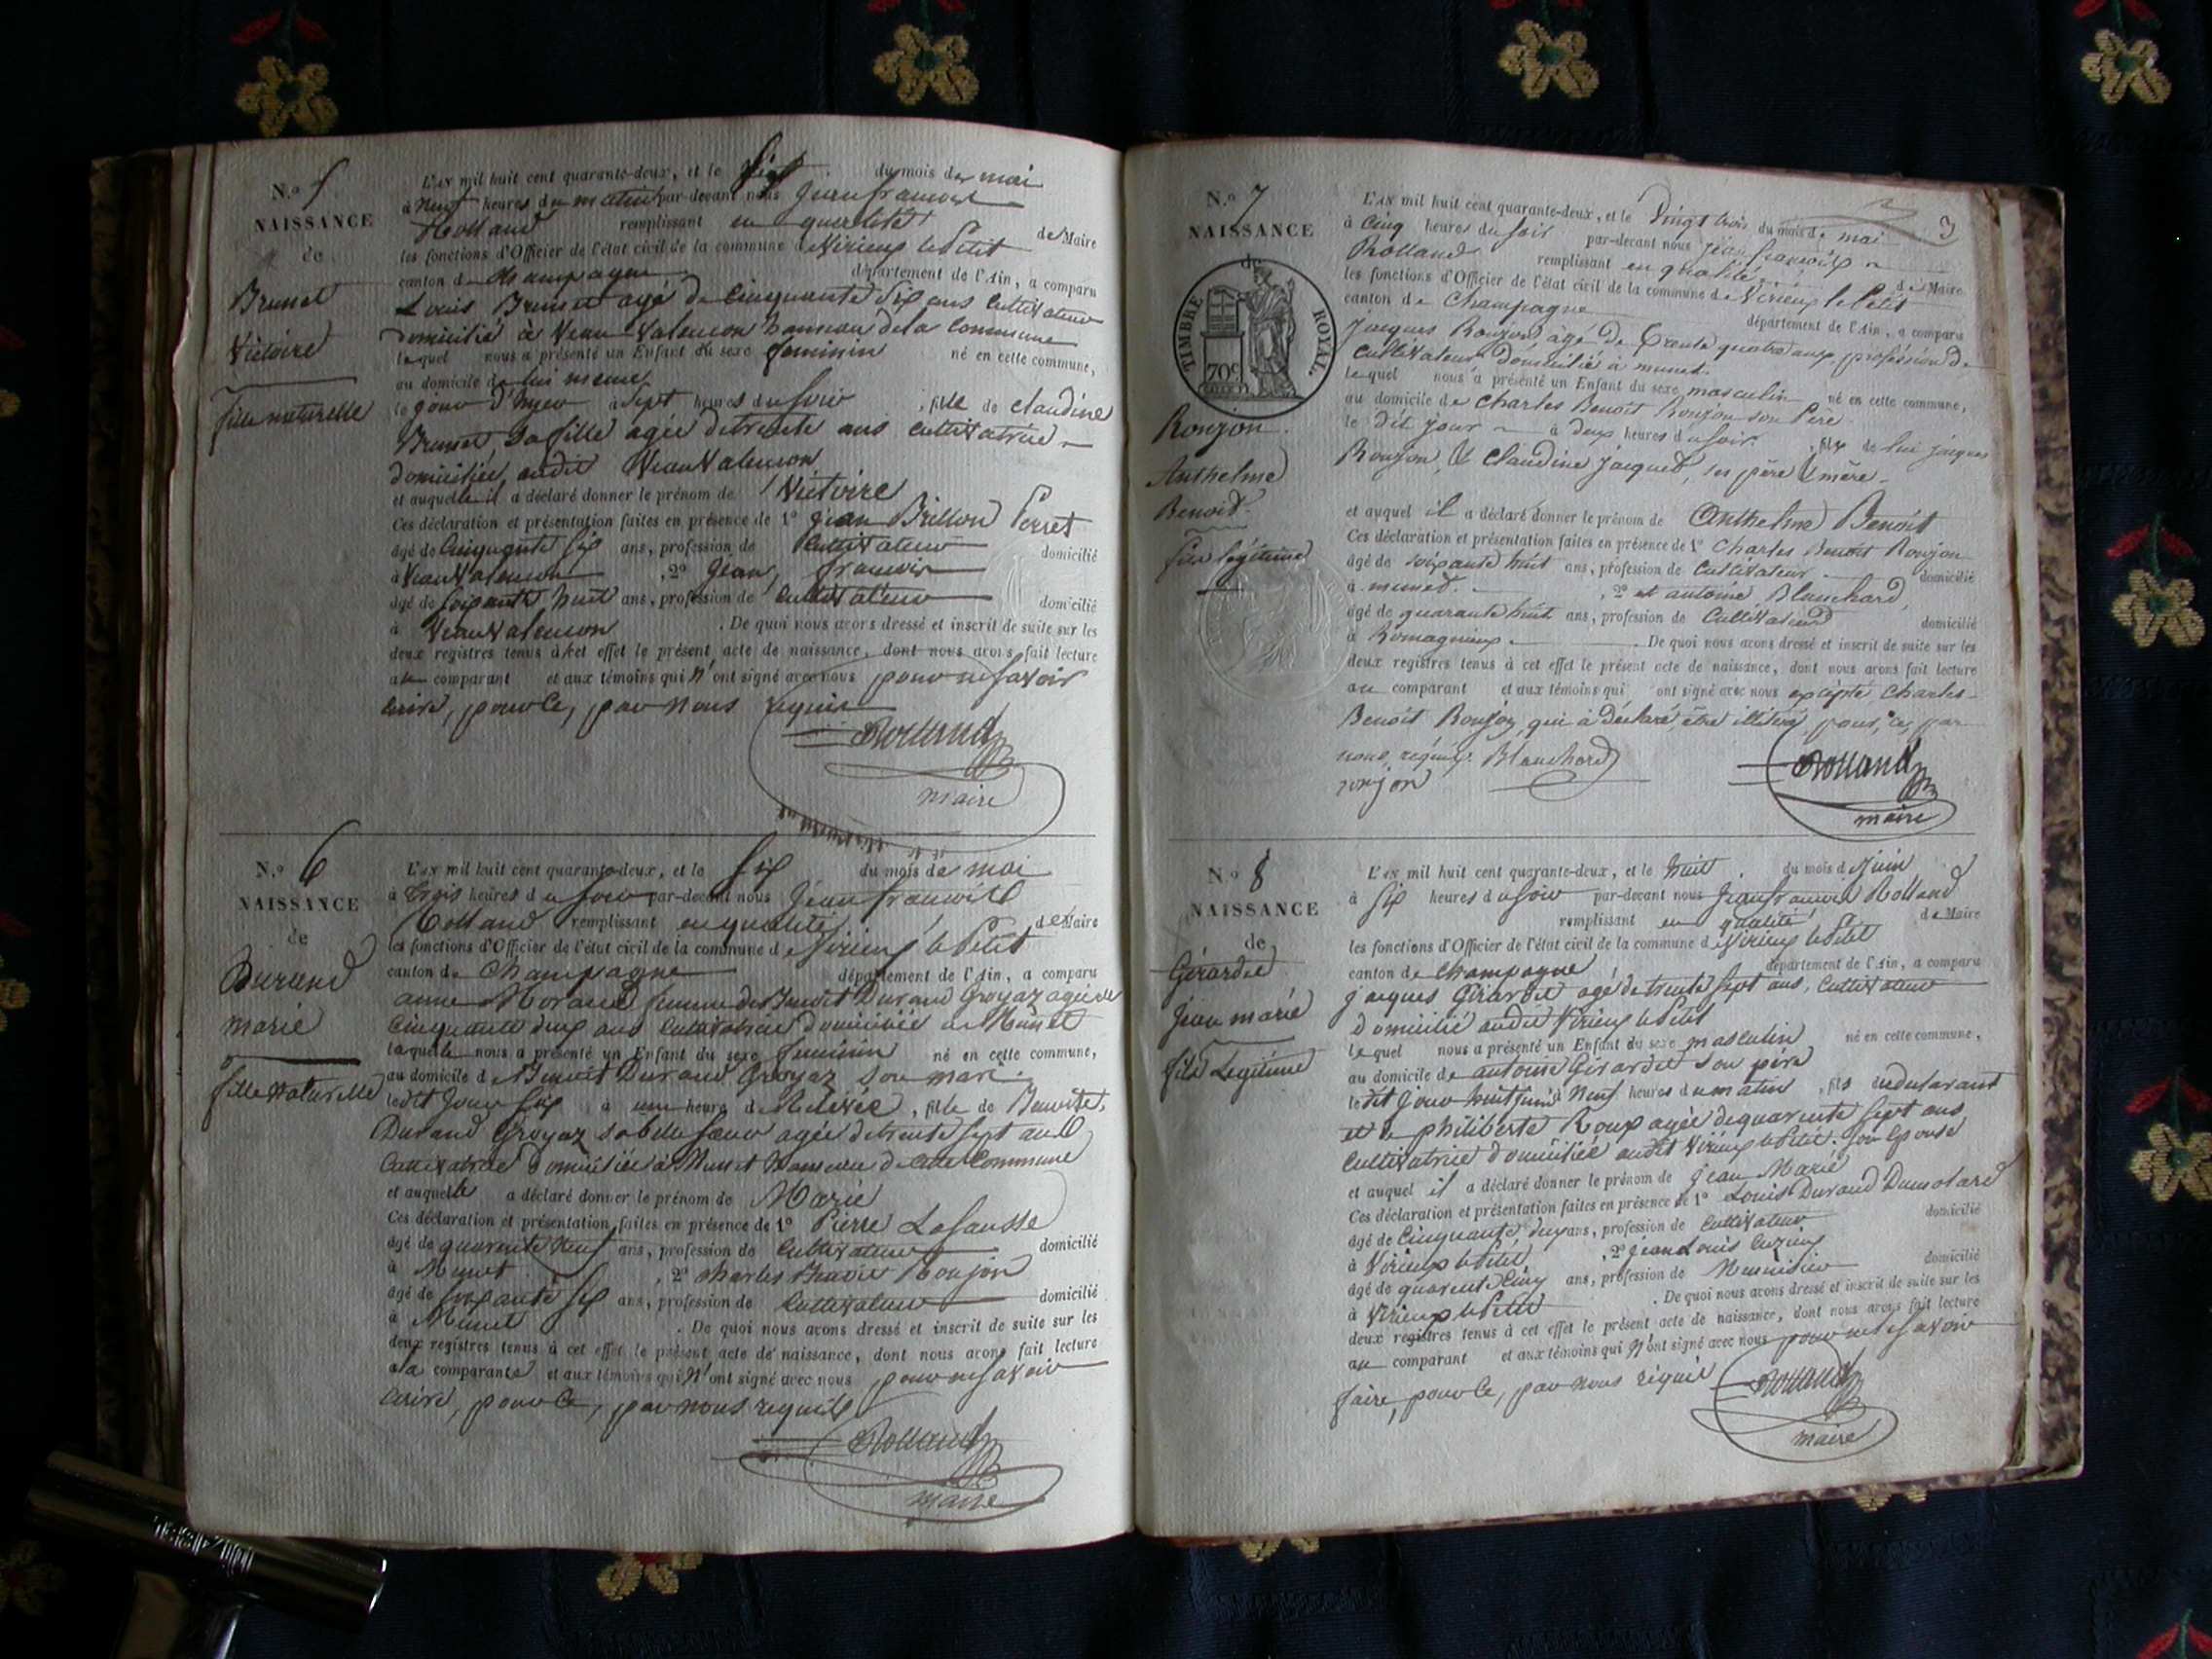 N.o 5
NAISSANCE
de
Brunet
Victoire
fille naturelle
L'AN mil huit cent quarante-deux, et le six du mois de mai
à neuf heures du matin par-devant nous jean françois
Rolland remplissant en qualité de Maire
les fonctions d'Officier de l'état civil de la commune de Virieux le Petit
canton de Champagne département de l'Ain, a comparu
Louis Brunet agé de Cinquante Six ans Cultivateur
domicilié à Veau Valencon hameau de la Commune
lequel nous a présenté un Enfant du sexe feminin né en cette commune,
au domicile de lui meme
le jour d'hyer à Sept heures du soir , fille de claudine
Brunet Sa fille agée de trente ans cultivatrice
domiciliée audit VeauValencon
et auquelle il a déclaré donner le prénom de Victoire
Ces déclaration et présentation faites en présence de 1º jean Brillon Perret
âgé de Cinquante six ans, profession de Cultivateur domicilié
à VeauValencon , 2º jean francois
âgé de soixante huit ans, profession de Cultivateur domicilié
à VeauValencon . De quoi nous avons dressé et inscrit de suite sur les
deux registres tenus à cet effet le présent acte de naissance, dont nous avons fait lecture
au comparant et aux témoins qui n'ont signé avec nous pour ne savoir
écrire, pour ce, par nous requis
Rolland
maire
N.o 6
NAISSANCE
de
Durand
marie
fille Naturelle
L'AN mil huit cent quarante-deux, et le six du mois de mai
à trois heures du soir par-devant nous jean francois
Rolland remplissant en qualité de Maire
les fonctions d'Officier de l'état civil de la commune de Virieux le Petit
canton de Champagne département de l'Ain, a comparu
anne Morand femme de Benoit Durand Groyaz agée de
Cinquante deux ans Cultivatrice domiciliée à Munet
laquelle nous a présenté un Enfant du sexe feminin né en cette commune,
au domicile de Benoit Durand Groyaz son mari
ledit jour six à une heure de Relevée , fille de Benoite
Durand Groyaz sa belle soeur agée de trente sept ans
Cultivatrice domiciliée à Munet hameau de cette Commune
et auquelle a déclaré donner le prénom de Marie
Ces déclaration et présentation faites en présence de 1º Pierre Lasausse
âgé de quarente Neuf ans, profession de Cultivateur domicilié
à Munet , 2º charles Roujon
âgé de soixante six ans, profession de Cultivateur domicilié
à Munet . De quoi nous avons dressé et inscrit de suite sur les
deux registres tenus à cet effet le présent acte de naissance, dont nous avons fait lecture
à la comparante et aux témoins qui n'ont signé avec nous pour ne savoir
écrire, pour ce, par nous requis
Rolland
maire
3
N.o 7
NAISSANCE
de
TIMBRE ROYAL.
70c
Roujon
Anthelme
Benoit
fils légitime
L'AN mil huit cent quarante-deux, et le vingt trois du mois de mai
à cinq heures du soir par-devant nous jean françois
Rolland remplissant en qualité de Maire
les fonctions d'Officier de l'état civil de la commune de Virieux le Petit
canton de Champagne département de l'Ain, a comparu
jacques Roujon, âgé de trente quatre ans, profession de
cultivateur domicilié à munet.
lequel nous a présenté un Enfant du sexe masculin né en cette commune,
au domicile de Charles Benoit Roujon son Père
le dit jour à deux heures du soir. , fils de lui jacques
Roujon, & Claudine jacquet, ses père & mère
et auquel il a déclaré donner le prénom de Anthelme Benoit
Ces déclaration et présentation faites en présence de 1º Charles Benoit Roujon
âgé de soixante huit ans, profession de Cultivateur domicilié
à munet. , 2º et antoine Blanchard,
âgé de quarante huit ans, profession de Cultivateur domicilié
à Romagnieux . De quoi nous avons dressé et inscrit de suite sur les
deux registres tenus à cet effet le présent acte de naissance, dont nous avons fait lecture
au comparant et aux témoins qui ont signé avec nous excepté Charles
Benoit Roujon, qui à déclaré être illitéré, pour, ce, par
nous, requis. Blanchard
roujon
Rolland
maire
N.o 8
NAISSANCE
de
Girardet
jean marie
fils Légitime
L'AN mil huit cent quarante-deux, et le huit du mois de juin
à six heures du soir par-devant nous jean francois Rolland
remplissant en qualité de Maire
les fonctions d'Officier de l'état civil de la commune de Virieux le Petit
canton de Champagne département de l'Ain, a comparu
jacques Girardet agé de trente sept ans, Cultivateur
domicilié audit Virieux le Petit
lequel nous a présenté un Enfant du sexe masculin né en cette commune,
au domicile de antoine Girardet son père
ledit jour huit juin à Neuf heures du matin , fils du declarant
et de philiberte Roux agée de quarente sept ans
Cultivatrice domiciliée audit Virieux le Petit. son Epouse
et auquel il a déclaré donner le prénom de jean Marie
Ces déclaration et présentation faites en présence de 1º Louis Durand Dumolard
âgé de Cinquante deux ans, profession de Cultivateur domicilié
à Virieux le Petit , 2º jean Louis Cuzin
âgé de quarente Cinq ans, profession de Menuisier domicilié
à Virieux le Petit . De quoi nous avons dressé et inscrit de suite sur les
deux registres tenus à cet effet le présent acte de naissance, dont nous avons fait lecture
au comparant et aux témoins qui n'ont signé avec nous pour ne le savoir
faire, pour ce, par nous requis
Rolland
maire